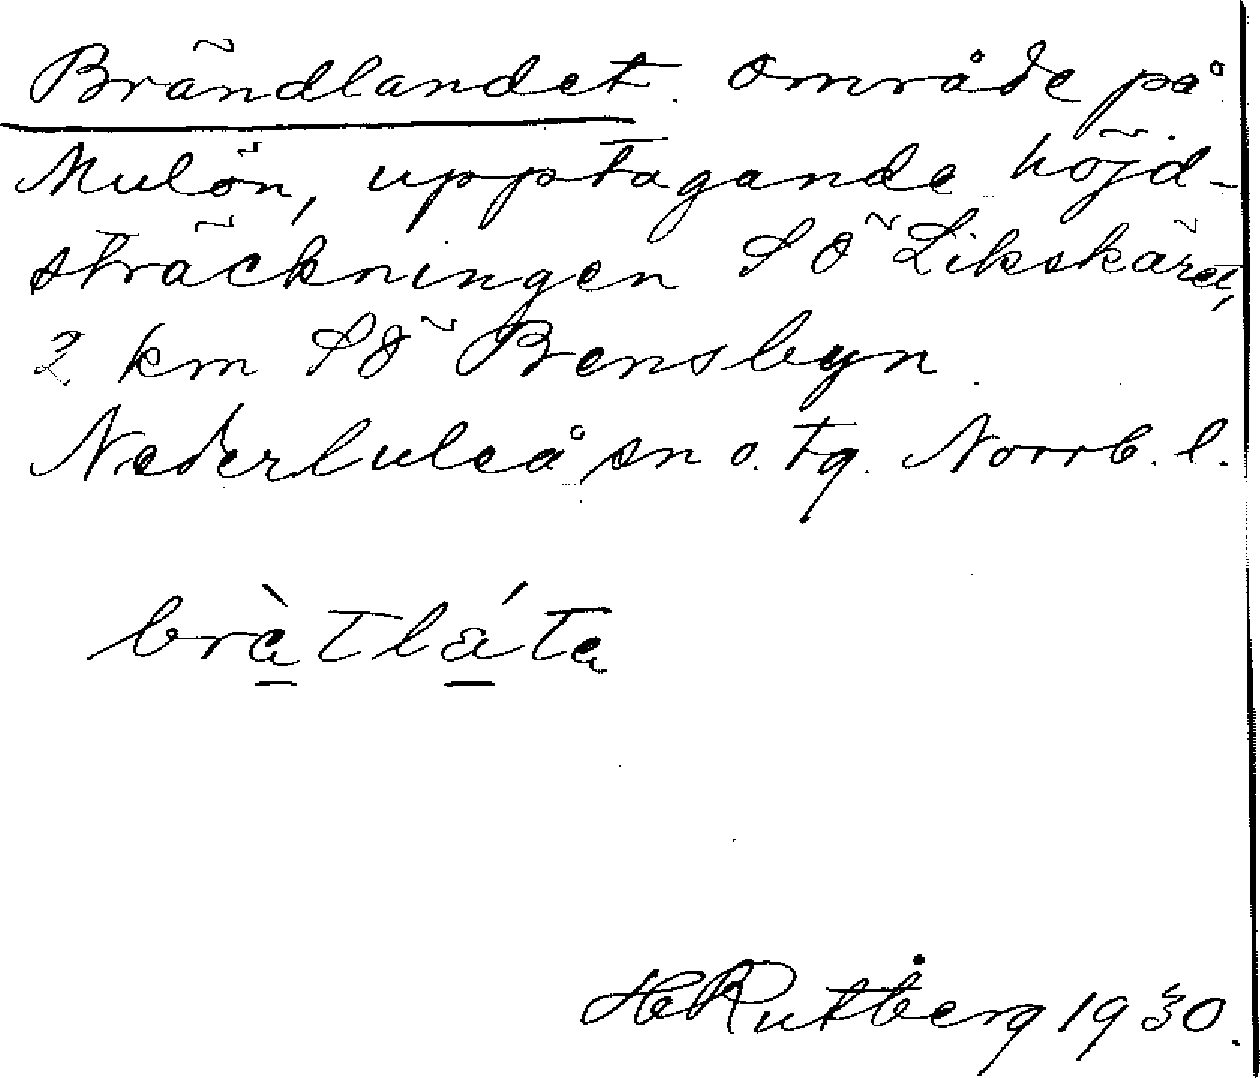 Brändlandet. Område på
Mulön, upptagande höjd-
sträckningen SÖ Likskäret,
2 km SÖ Bensbyn.
Nederluleå sn o. tg. Norrb. l.
bràtláta
HRutberg 1930.